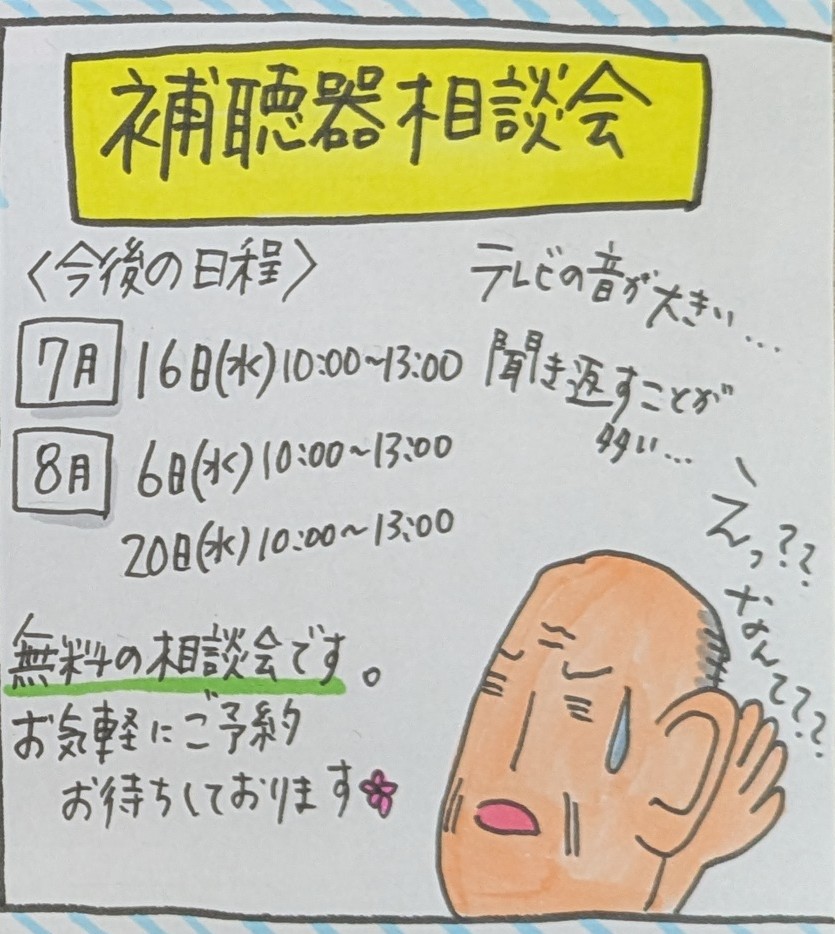 補聴器相談会
〈今後の日程〉
7月 16日(水)10:00~13:00
8月 6日(水)10:00~13:00
20日(水)10:00~13:00
テレビの音が大きい...
聞き返すことが
多い...
えっ??
なんて???
無料の相談会です。
お気軽にご予約
お待ちしております